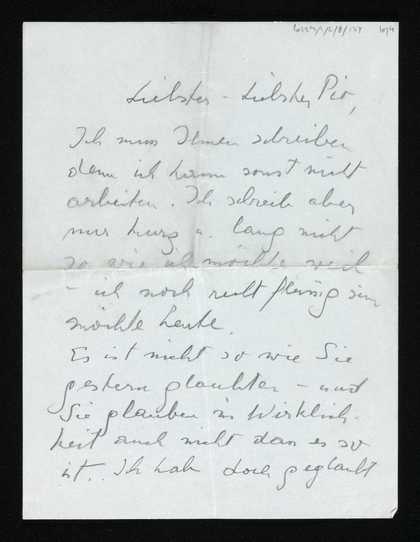 Liebster - Liebster Pio,
Ich muss Ihnen schreiben
denn ich kann sonst nicht
arbeiten. Ich schreib aber
nur kurz u. lang nicht
so wie ich möchte weil
- ich noch recht fleissig sein
möchte heute.
Es ist nicht so wie Sie
gestern glaubten - und
Sie glauben in Wirklich-
keit auch nicht dass es so
ist. Ich hab doch geglaubt